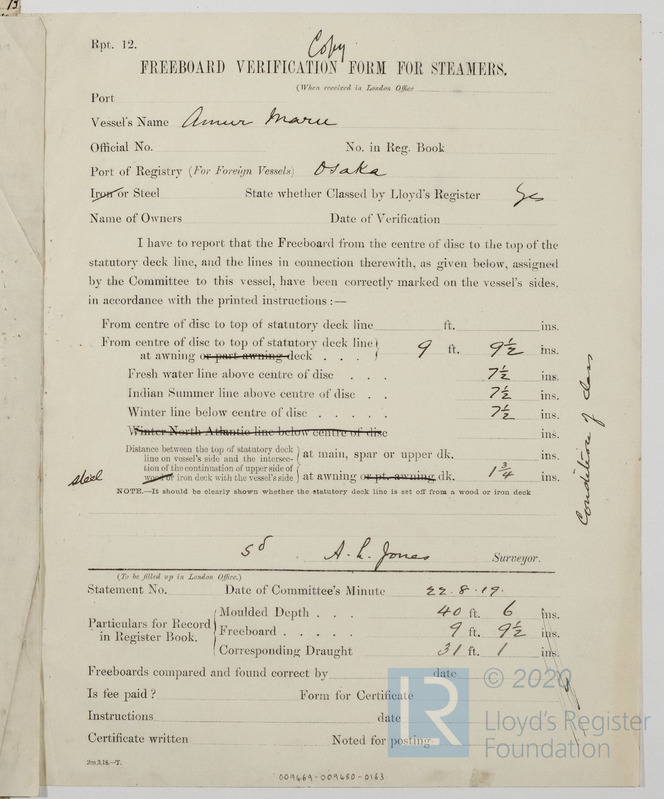 13
Rpt. 12.
Copy
FREEBOARD VERIFICATION FORM FOR STEAMERS.
(When received in London Office
Port
Vessel's Name Amur Maru
Official No. No. in Reg. Book
Port of Registry (For Foreign Vessels) Osaka
Iron or Steel State whether Classed by Lloyd's Register Yes
Name of Owners Date of Verification
I have to report that the Freeboard from the centre of disc to the top of the
statutory deck line, and the lines in connection therewith, as given below, assigned
by the Committee to this vessel, have been correctly marked on the vessel's sides,
in accordance with the printed instructions :—
From centre of disc to top of statutory deck line ft. ins.
From centre of disc to top of statutory deck line
at awning or part awning deck . . . 9 ft. 9½ ins.
Fresh water line above centre of disc . . . 7½ ins.
Indian Summer line above centre of disc . . 7½ ins.
Winter line below centre of disc . . . . . 7½ ins.
Winter North Atlantic line below centre of disc ins.
Distance between the top of statutory deck
line on vessel's side and the intersec-
tion of the continuation of upper side of
steel wood or iron deck with the vessel's side
at main, spar or upper dk. ins.
at awning or pt. awning dk. 1¾ ins.
NOTE.—It should be clearly shown whether the statutory deck line is set off from a wood or iron deck
Condition of class
Sd A. L. Jones Surveyor.
(To be filled up in London Office.)
Statement No. Date of Committee's Minute 22.8.19.
Particulars for Record
in Register Book.
Moulded Depth . . . 40 ft. 6 ins.
Freeboard . . . . . 9 ft. 9½ ins.
Corresponding Draught 31 ft. 1 ins.
Freeboards compared and found correct by date
Is fee paid ? Form for Certificate
Instructions date
Certificate written Noted for posting
2m.3.18.—T.
009469-009480-0163
LR
© 2020
Lloyd's Register
Foundation